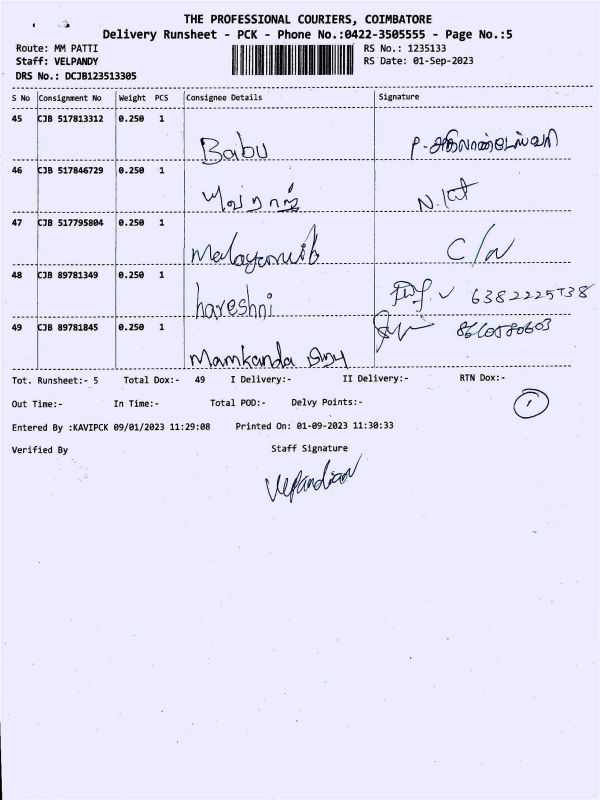 THE PROFESSIONAL COURIERS, COIMBATORE
Delivery Runsheet - PCK - Phone No.:0422-3505555 - Page No.:5
Route: MM PATTI RS No.: 1235133
Staff: VELPANDY RS Date: 01-Sep-2023
DRS No.: DCJB123513305
S No Consignment No Weight PCS Consignee Details Signature
45 CJB 517813312 0.250 1
Babu P-அகிலாண்டேஸ்வரி
46 CJB 517846729 0.250 1
யுவராஜ்
47 CJB 517795804 0.250 1
C/N
48 CJB 89781349 0.250 1
hareshni 6382225738
49 CJB 89781845 0.250 1
8610580603
Mamkanda
Tot. Runsheet:- 5 Total Dox:- 49 I Delivery:- II Delivery:- RTN Dox:-
Out Time:- In Time:- Total POD:- Delvy Points:- 1
Entered By :KAVIPCK 09/01/2023 11:29:08 Printed On: 01-09-2023 11:30:33
Verified By Staff Signature
Velpandian